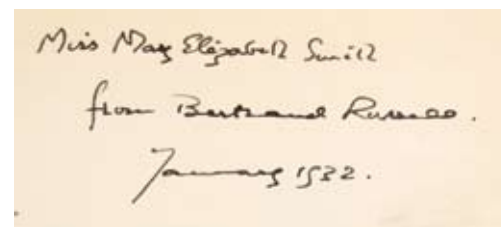 Miss May Elizabeth Smith
from Bertrand Russell.
January 1932.